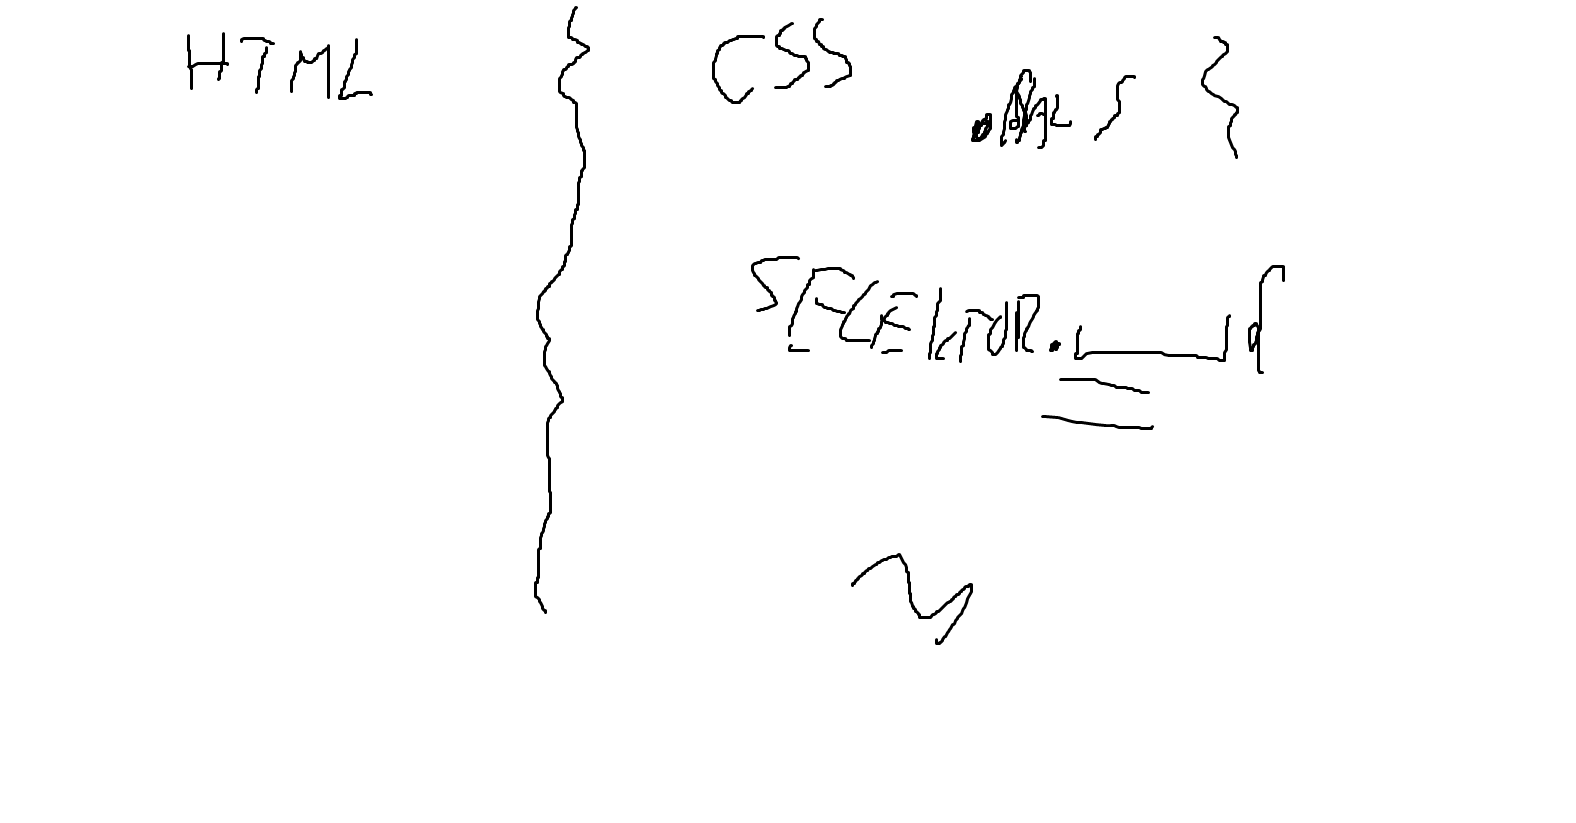 HTML
CSS
SELEKTOR.